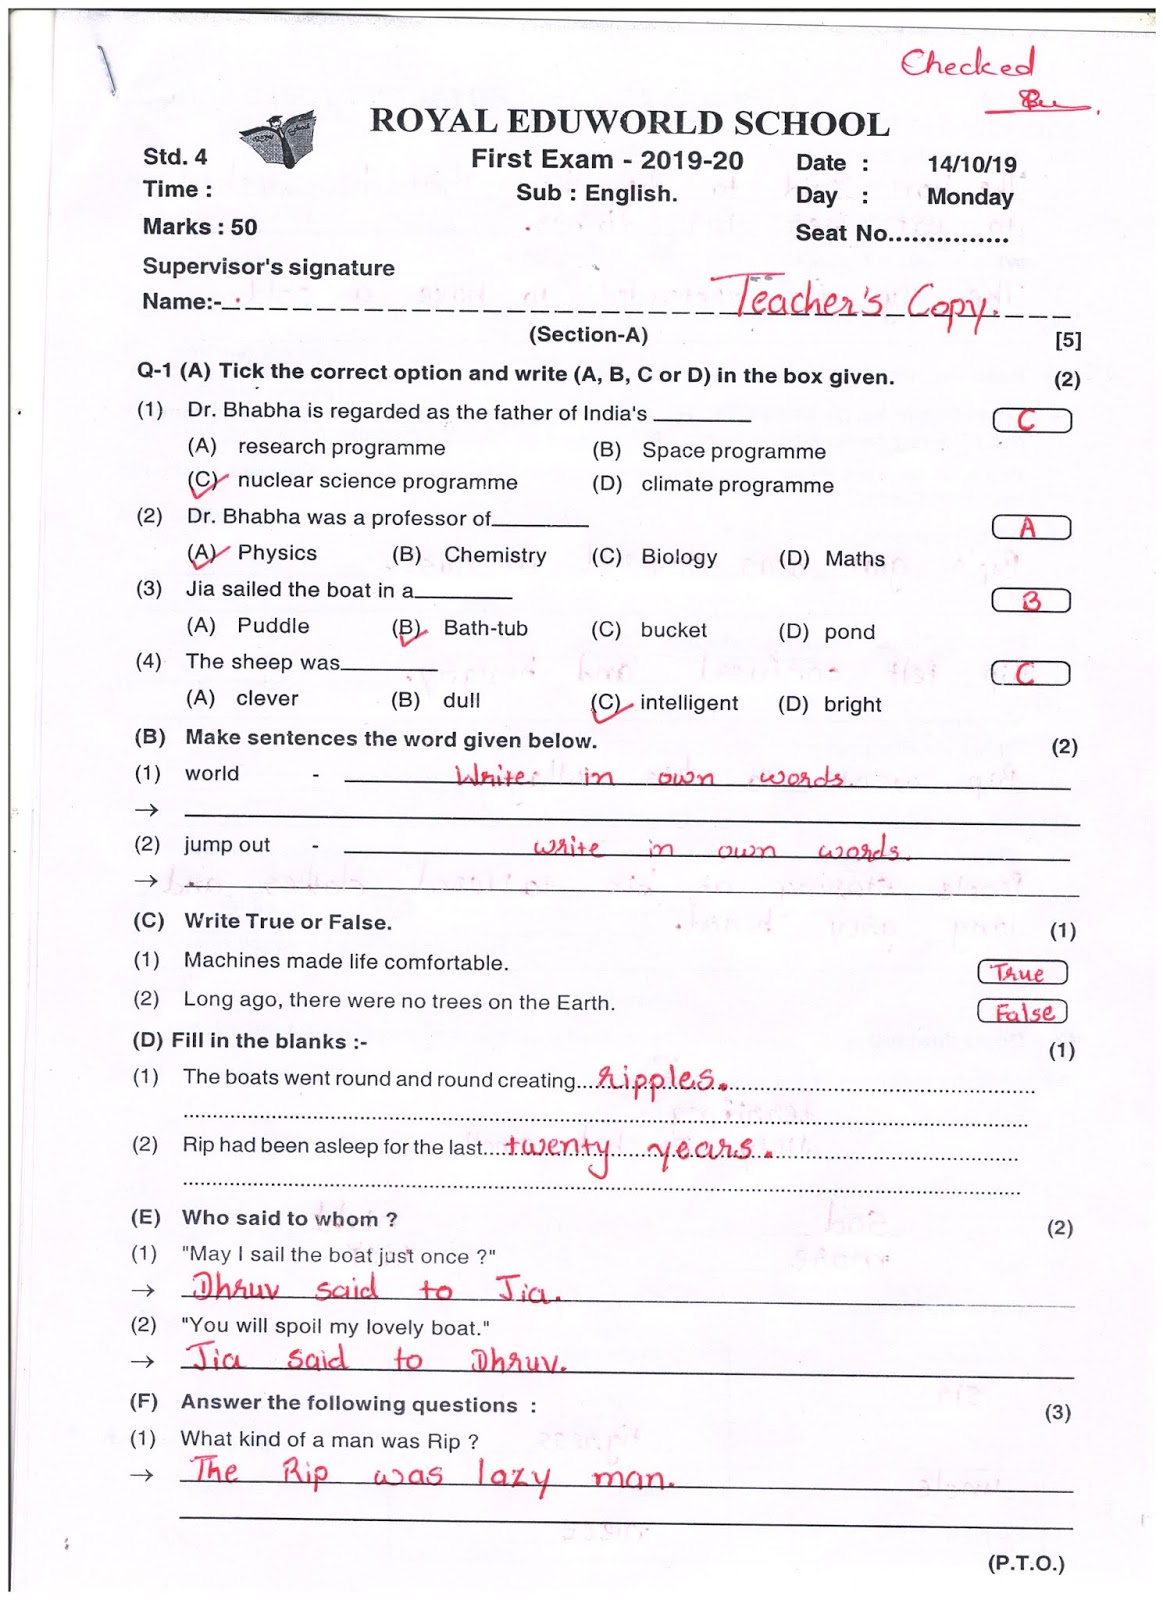 Checked
ROYAL EDUWORLD SCHOOL
Std. 4 First Exam - 2019-20 Date : 14/10/19
Time : Sub : English. Day : Monday
Marks : 50 Seat No...............
Supervisor's signature
Name:- Teacher's Copy.
(Section-A) [5]
Q-1 (A) Tick the correct option and write (A, B, C or D) in the box given. (2)
(1) Dr. Bhabha is regarded as the father of India's ________ C
(A) research programme (B) Space programme
(C) nuclear science programme (D) climate programme
(2) Dr. Bhabha was a professor of________ A
(A) Physics (B) Chemistry (C) Biology (D) Maths
(3) Jia sailed the boat in a________ B
(A) Puddle (B) Bath-tub (C) bucket (D) pond
(4) The sheep was________ C
(A) clever (B) dull (C) intelligent (D) bright
(B) Make sentences the word given below. (2)
(1) world - Write in own words.
→
(2) jump out - write in own words.
→
(C) Write True or False. (1)
(1) Machines made life comfortable. True
(2) Long ago, there were no trees on the Earth. False
(D) Fill in the blanks :- (1)
(1) The boats went round and round creating...ripples.
(2) Rip had been asleep for the last....twenty years.
(E) Who said to whom ? (2)
(1) "May I sail the boat just once ?"
→ Dhruv said to Jia.
(2) "You will spoil my lovely boat."
→ Jia said to Dhruv.
(F) Answer the following questions : (3)
(1) What kind of a man was Rip ?
→ The Rip was lazy man.
(P.T.O.)